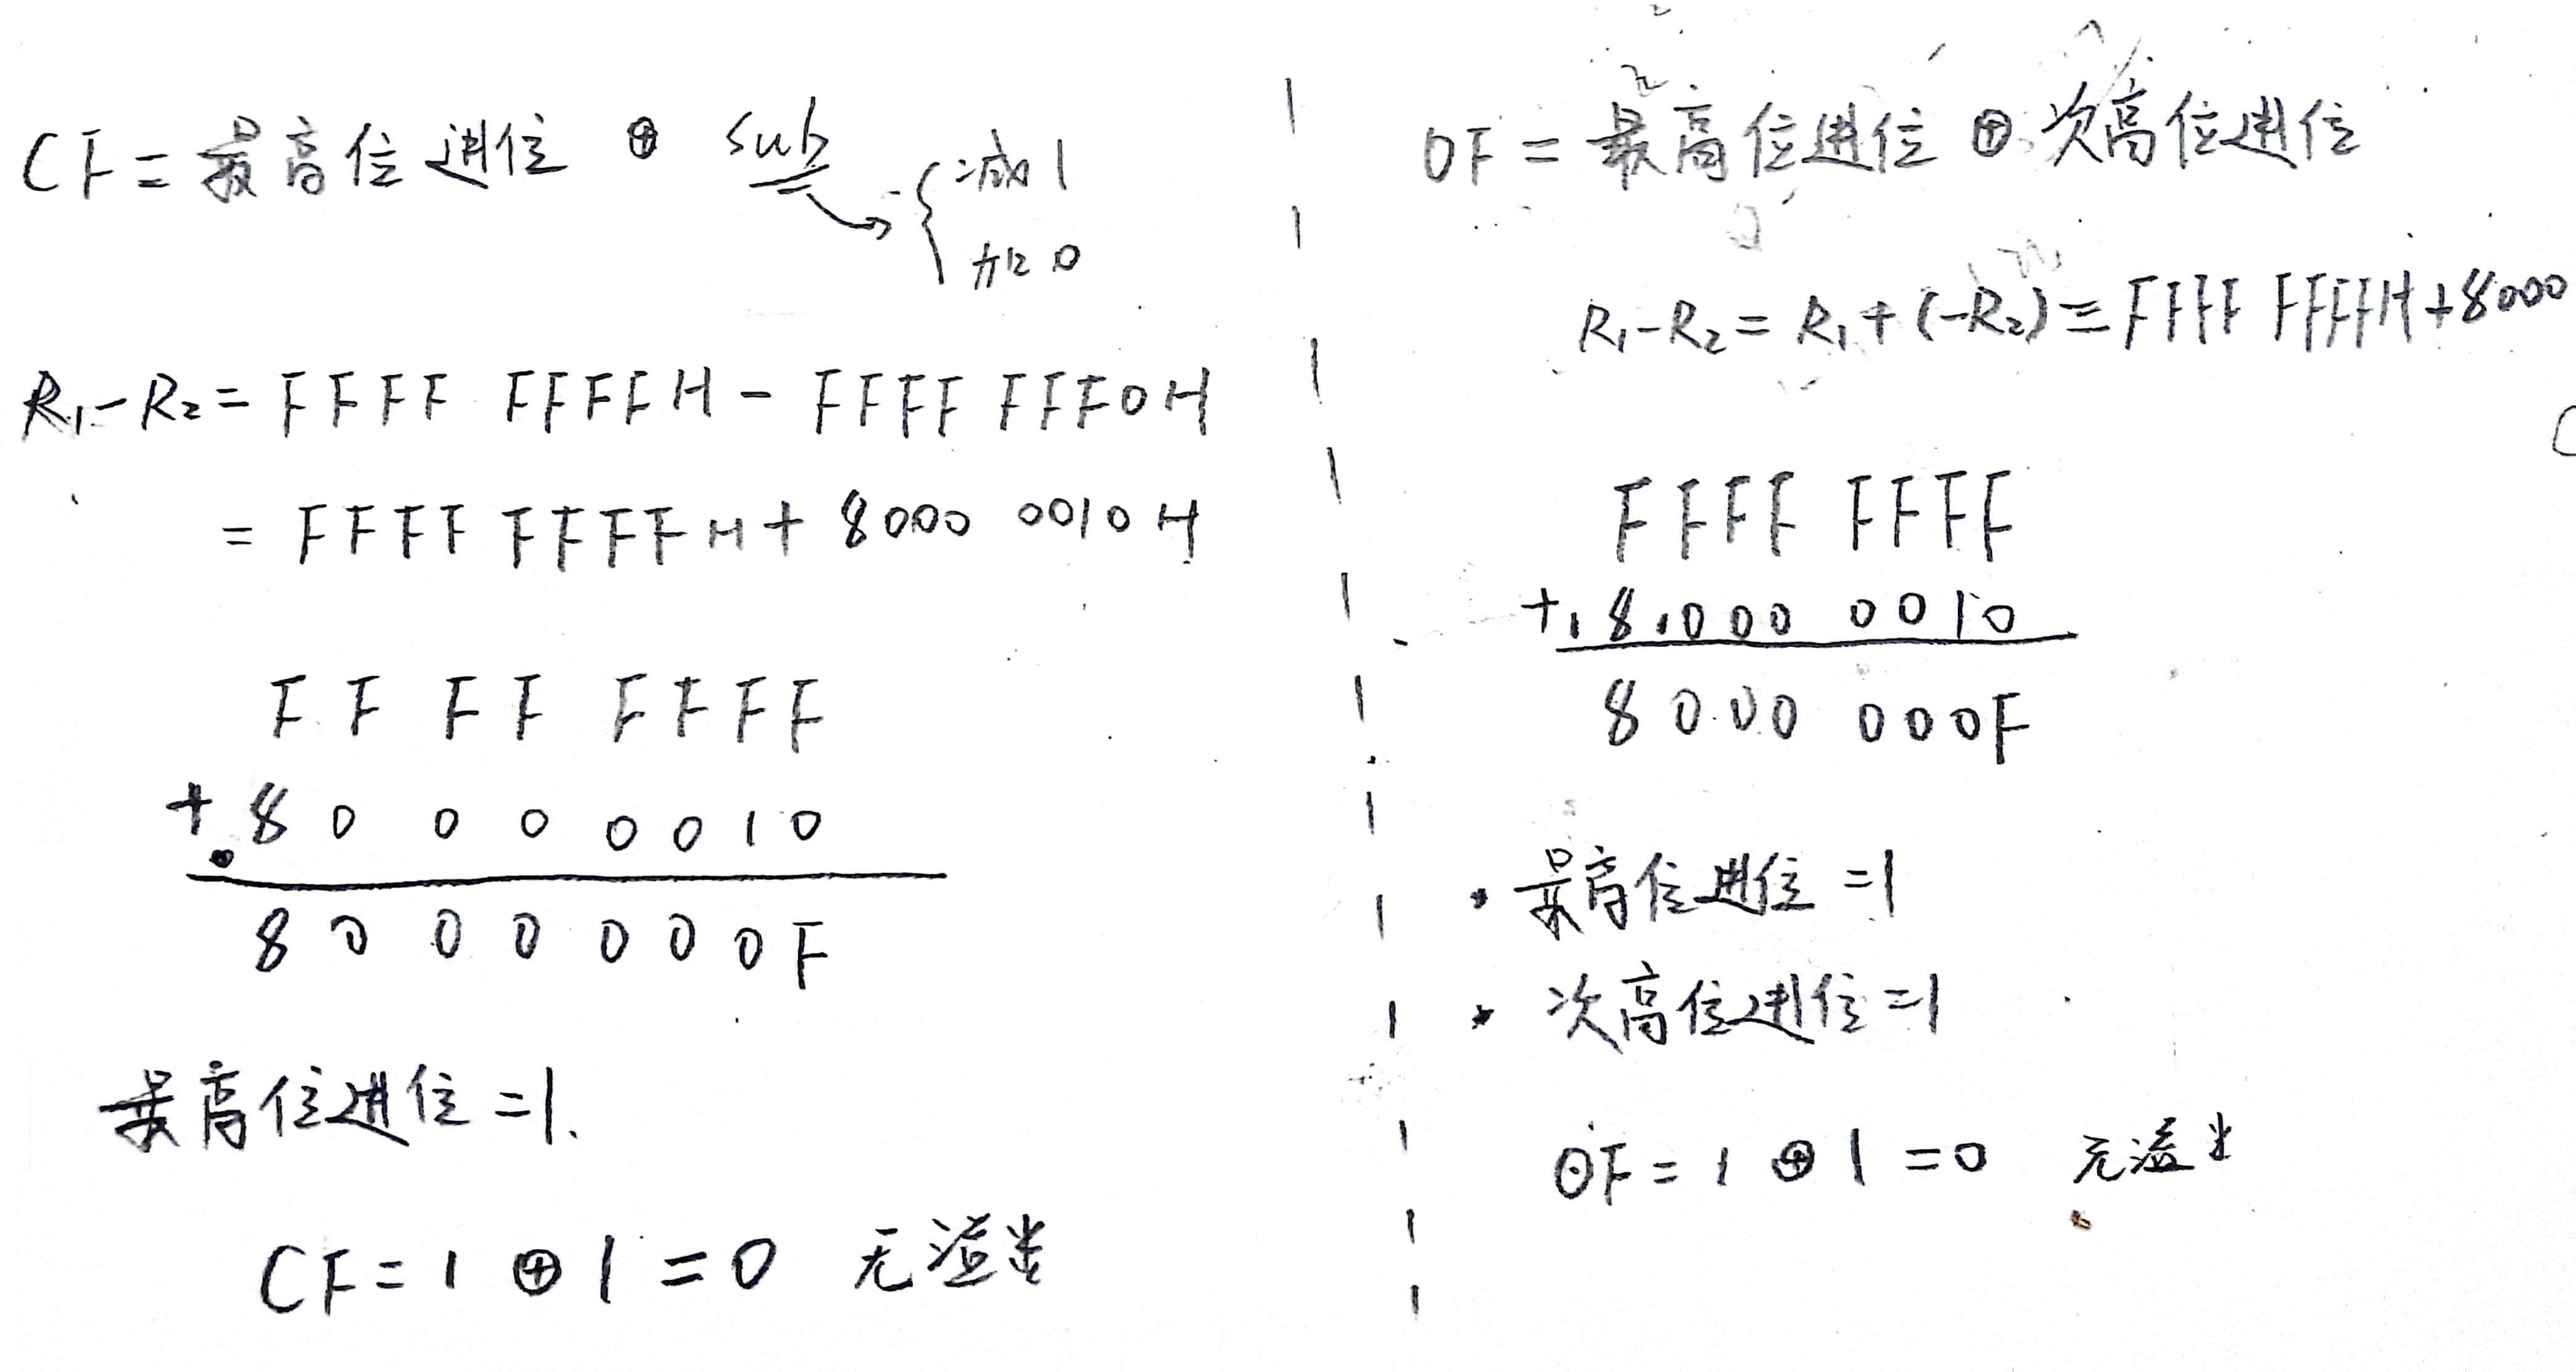 CF = 最高位进位 ⊕ sub
减 1
加 0
R₁-R₂ = FFFF FFFFH - FFFF FFF0H
= FFFF FFFFH + 8000 0010H
FFFF FFFF
+ 8000 0010
8000 000F
最高位进位 = 1.
CF = 1 ⊕ 1 = 0 无溢出
OF = 最高位进位 ⊕ 次高位进位
R₁-R₂ = R₁ + (-R₂) = FFFF FFFFH + 8000
FFFF FFFF
+ 8000 0010
8000 000F
· 最高位进位 = 1
· 次高位进位 = 1
OF = 1 ⊕ 1 = 0 无溢出